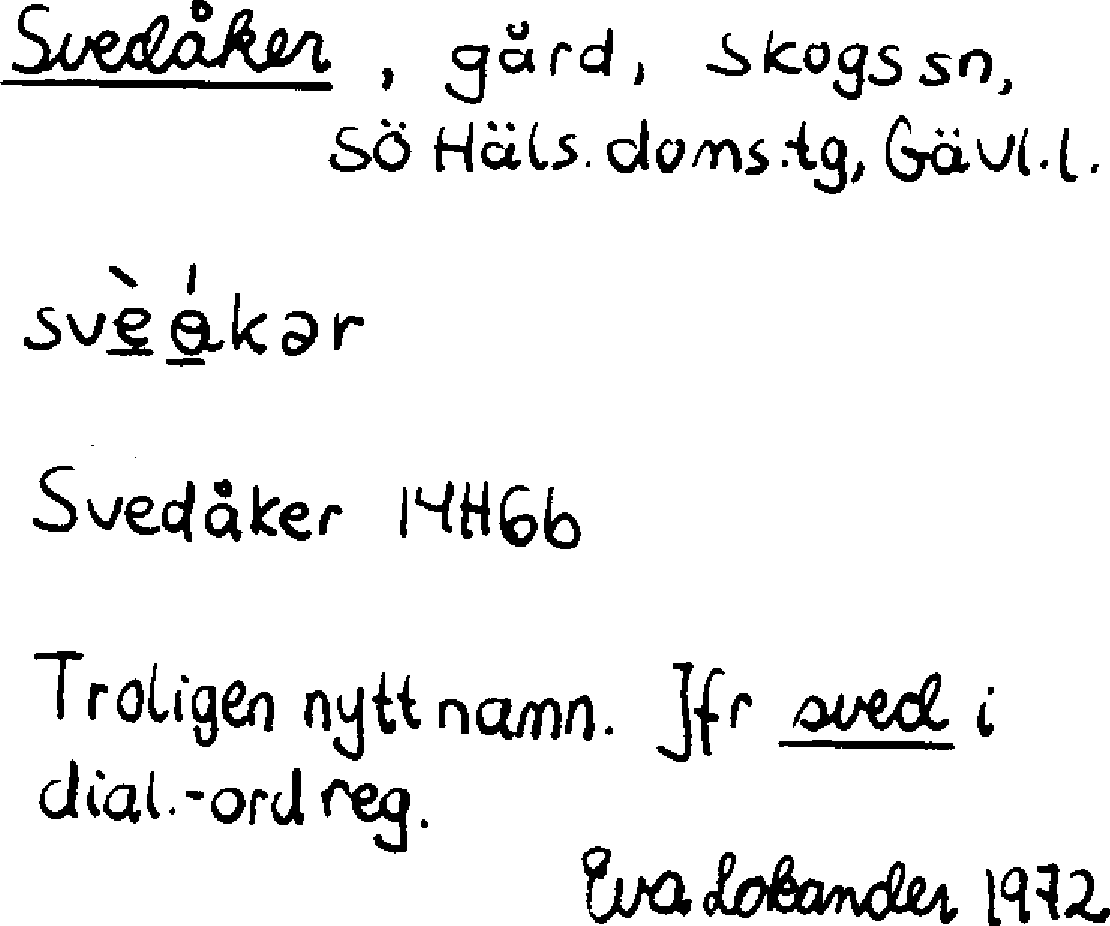 Svedåker, gård, Skogs sn,
Sö Häls. doms.tg, Gävl.l.
Svedåker 14H6b
Troligen nytt namn. Jfr sved i
dial.-ordreg.
Eva Lokander 1972